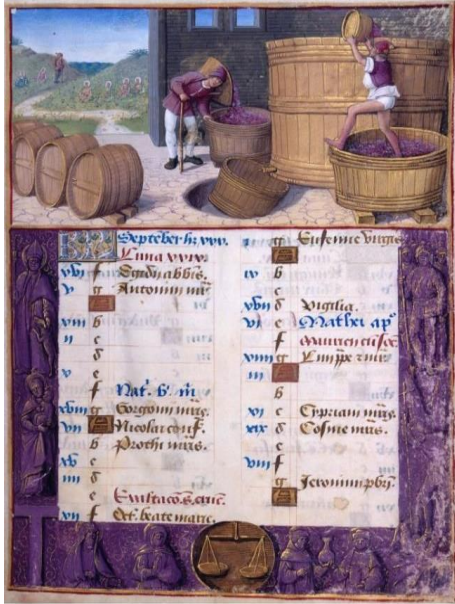 KL September hr xxx.
Luna xxix.
f Egidii abbis.
v g Antonini mris
A
xiii b
ii c
d
e
f Nat. b. m
xviii g Gorgonii mris.
vii A Nicolai conf.
b Prothi mris.
xv c
iiii d
e Exaltaco s. cruc.
xii f Oct. beate marie.
i g Eufemie virgis
A
b
c
xvii d Vigilia.
vi e Mathei apo
f Mauricii cu soc.
xiiii g Lini pape mris
iii A
b
xi c Cypriani mris.
xix d Cosme mris.
e
viii f
g Jeronimi pbri.
A